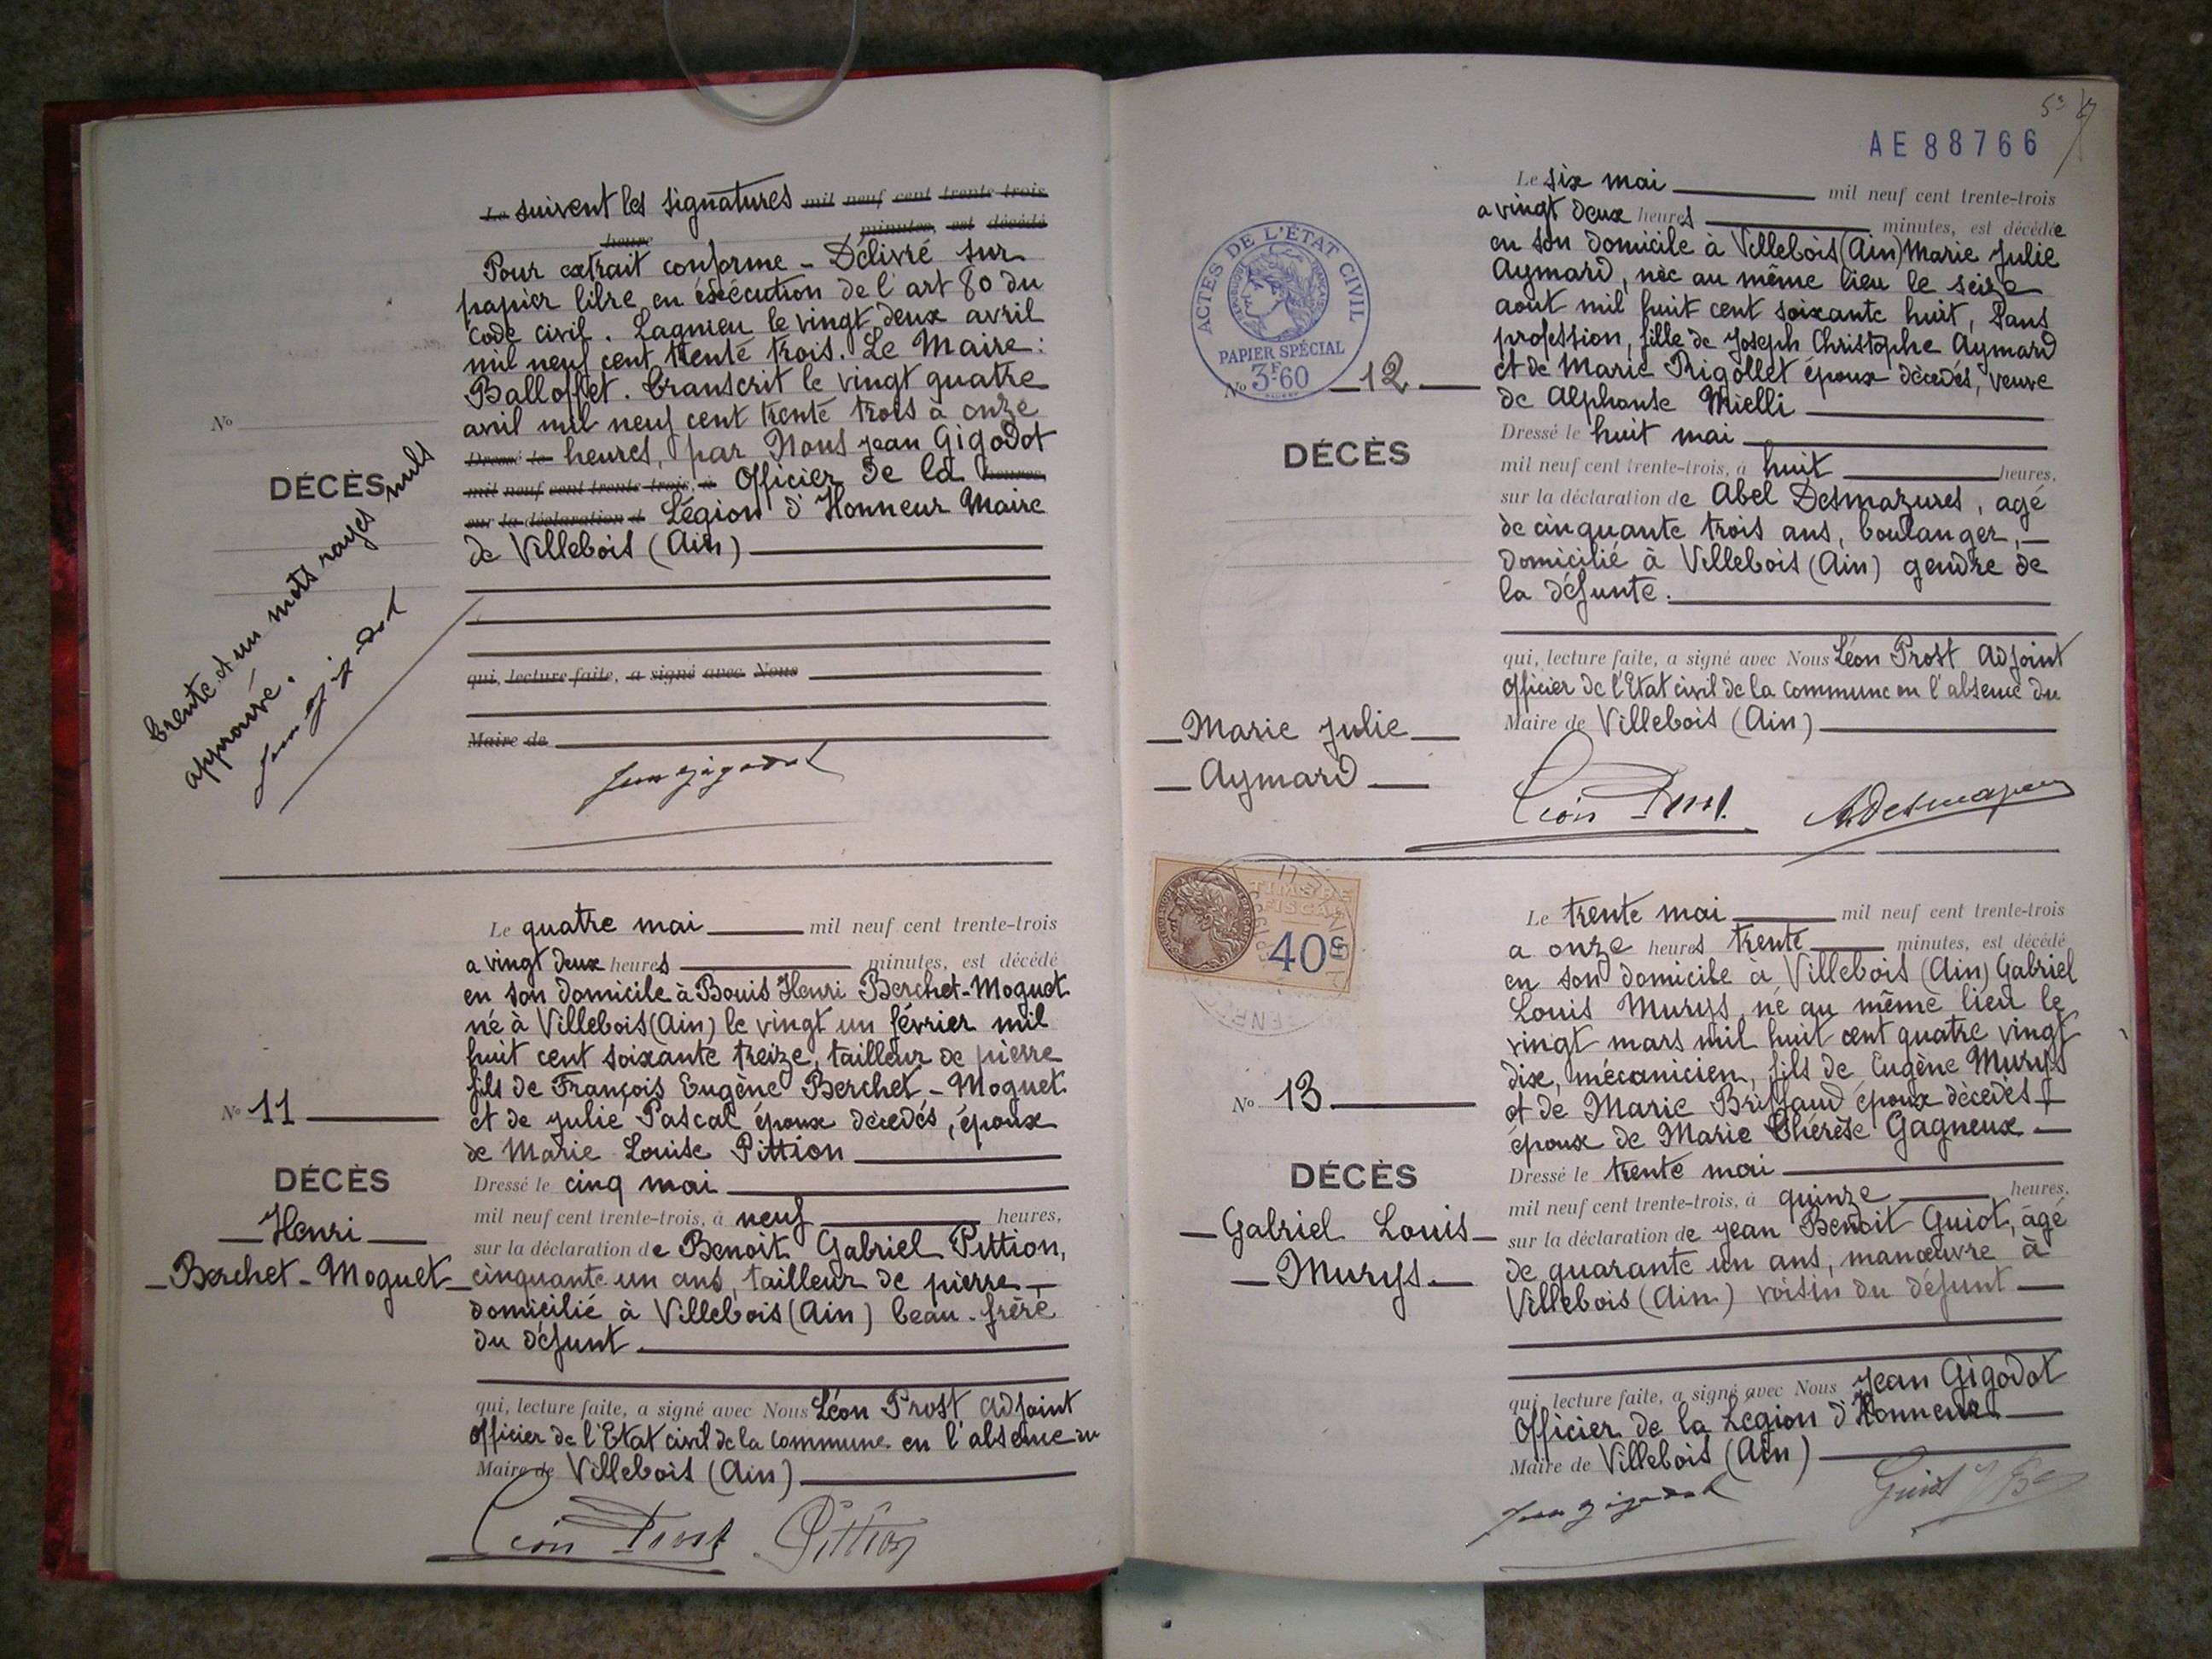 Le suivent les signatures mil neuf cent trente-trois
heure minutes, est décédé
Pour extrait conforme - Délivré sur
papier libre en éxécution de l'art 80 du
code civil. Lagnieu le vingt deux avril
mil neuf cent trente trois. Le Maire:
Balloffet. Transcrit le vingt quatre
avril mil neuf cent trente trois à onze
Dressé le heures, par Nous Jean Gigodot
mil neuf cent trente-trois, à Officier de la heures,
sur la déclaration d Légion d'Honneur Maire
de Villebois (Ain)
qui, lecture faite, a signé avec Nous
Maire de
Jean Gigodot
No
DÉCÈS
trente et un mots rayés nuls
approuvé.
Jean Gigodot
Le quatre mai mil neuf cent trente-trois
a vingt deux heures minutes, est décédé
en son domicile à Bouis Henri Berchet-Moguet
né à Villebois (Ain) le vingt un février mil
huit cent soixante treize, tailleur de pierre
fils de François Eugène Berchet-Moguet
et de Julie Pascal époux décedés, époux
de Marie Louise Pittion
Dressé le cinq mai
mil neuf cent trente-trois, à neuf heures,
sur la déclaration de Benoit Gabriel Pittion,
cinquante un ans, tailleur de pierre
domicilié à Villebois (Ain) beau-frère
du défunt.
qui, lecture faite, a signé avec Nous Léon Prost adjoint
officier de l'Etat civil de la commune en l'absence du
Maire de Villebois (Ain)
Léon Prost Pittion
No 11
DÉCÈS
Henri
Berchet-Moguet
AE88766
Le six mai mil neuf cent trente-trois
a vingt deux heures minutes, est décédée
en son domicile à Villebois (Ain) Marie Julie
Aymard, née au même lieu le seize
aout mil huit cent soixante huit, sans
profession, fille de Joseph Christophe Aymard
et de Marie Rigollet époux décedés, veuve
de Alphonse Mielli
Dressé le huit mai
mil neuf cent trente-trois, à huit heures,
sur la déclaration de Abel Desmazures, agé
de cinquante trois ans, boulanger,
domicilié à Villebois (Ain) gendre de
la défunte.
qui, lecture faite, a signé avec Nous Léon Prost adjoint
officier de l'Etat civil de la commune en l'absence du
Maire de Villebois (Ain)
Léon Prost ADesmazures
ACTES DE L'ÉTAT CIVIL
PAPIER SPÉCIAL
3F60
No 12
DÉCÈS
Marie Julie
Aymard
TIMBRE
FISCAL
40c
Le trente mai mil neuf cent trente-trois
a onze heures trente minutes, est décédé
en son domicile à Villebois (Ain) Gabriel
Louis Murys, né au même lieu le
vingt mars mil huit cent quatre vingt
dix, mécanicien, fils de Eugène Murys
et de Marie Briffaud époux décedés
époux de Marie Thérèse Gagneux
Dressé le trente mai
mil neuf cent trente-trois, à quinze heures,
sur la déclaration de Jean Benoit Guiot, agé
de quarante un ans, manœuvre à
Villebois (Ain) voisin du défunt
qui, lecture faite, a signé avec Nous Jean Gigodot
Officier de la Légion d'Honneur
Maire de Villebois (Ain)
Jean Gigodot Guiot
No 13
DÉCÈS
Gabriel Louis
Murys